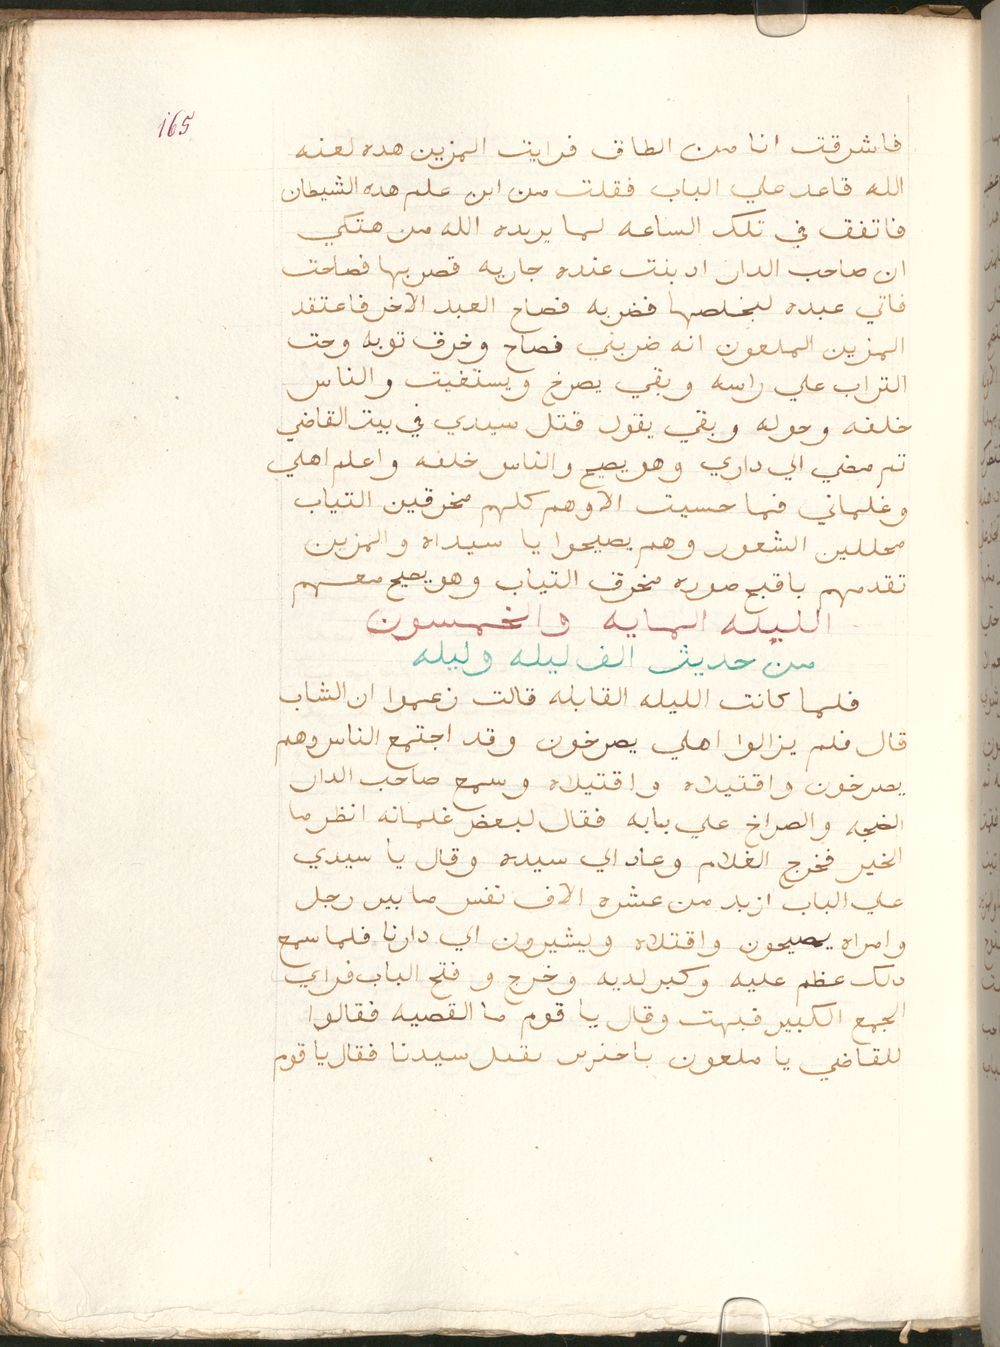 165
فاشرقت انا من الطاق فرايت المزين هده لعنه
الله قاعد علي الباب فقلت من اين علم هده الشيطان
فاتفق في تلك الساعه لما يريده الله من هتكي
ان صاحب الدار ادبنت عنده جاريه فصربها فصاحت
فاتي عبده ليخلصها فضربه فصاح العبد الاخر فاعتقد
المزين الملعون انه ضربني فصاح وخرق توبه وحت
التراب علي راسه وبقي يصرخ ويستغيت والناس
خلفه وحوله وبقي يقول قتل سيدي في بيت القاضي
تم مضي الي داري وهو يصيح والناس خلفه واعلم اهلي
وغلماني فما حسيت الا وهم كلهم مخرقين التياب
محللين الشعور وهم يصيحوا يا سيداه والمزين
تقدمهم باقبح صوره مخرق التياب وهو يصيح معهم
الليله المايه والخمسون
من حديث الف ليله وليله
فلما كانت الليله القابله قالت زعموا ان الشاب
قال فلم يزالوا اهلي يصرخون وقد اجتمع الناس وهم
يصرخون واقتيلاه واقتيلاه وسمع صاحب الدار
الضجه والصراخ علي بابه فقال لبعض غلمانه انظر ما
الخير فخرج الغلام وعاد الي سيده وقال يا سيدي
علي الباب ازيد من عشره الاف نفس ما بين رجل
وامراه يصيحون واقتلاه ويشيرون الي دارنا فلما سمع
دلك عظم عليه وكبر لديه وخرج وفتح الباب فراي
الجمع الكبير فبهت وقال يا قوم ما القصيه فقالوا
للقاضي يا ملعون يا خنزير تقتل سيدنا فقال يا قوم